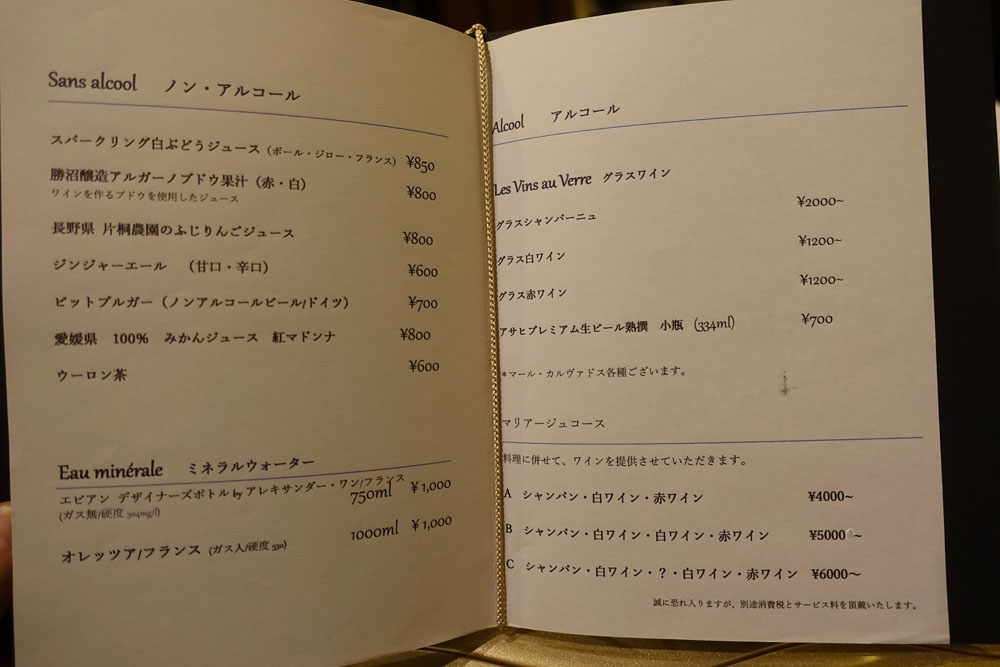 Sans alcool ノン・アルコール
スパークリング白ぶどうジュース（ポール・ジロー・フランス） ¥850
勝沼醸造アルガーノブドウ果汁（赤・白） ¥800
ワインを作るブドウを使用したジュース
長野県 片桐農園のふじりんごジュース ¥800
ジンジャーエール （甘口・辛口） ¥600
ビットブルガー（ノンアルコールビール/ドイツ） ¥700
愛媛県 100% みかんジュース 紅マドンナ ¥800
ウーロン茶 ¥600
Eau minérale ミネラルウォーター
エビアン デザイナーズボトル by アレキサンダー・ワン/フランス
(ガス無/硬度 304mg/l) 750ml ¥1,000
オレッツア/フランス (ガス入/硬度 530) 1000ml ¥1,000
Alcool アルコール
Les Vins au Verre グラスワイン
グラスシャンパーニュ ¥2000~
グラス白ワイン ¥1200~
グラス赤ワイン ¥1200~
アサヒプレミアム生ビール熟撰 小瓶 (334ml) ¥700
*マール・カルヴァドス各種ございます。
マリアージュコース
料理に併せて、ワインを提供させていただきます。
A シャンパン・白ワイン・赤ワイン ¥4000~
B シャンパン・白ワイン・白ワイン・赤ワイン ¥5000~
C シャンパン・白ワイン・？・白ワイン・赤ワイン ¥6000~
誠に恐れ入りますが、別途消費税とサービス料を頂戴いたします。